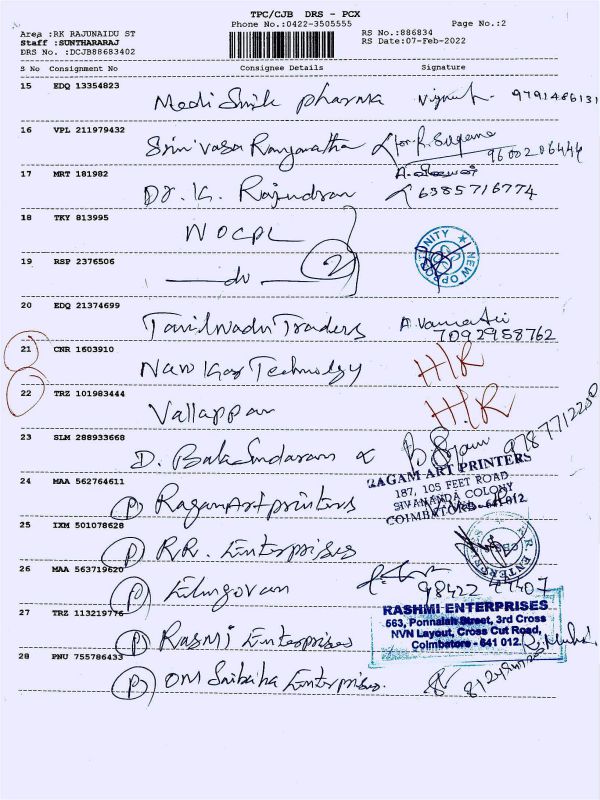 TPC/CJB DRS - PCX
Phone No.:0422-3505555
Page No.:2
Area :RK RAJUNAIDU ST
Staff :SUNTHARARAJ
DRS No. :DCJB88683402
RS No.:886834
RS Date:07-Feb-2022
S No Consignment No Consignee Details Signature
15 EDQ 13354823
Medi Smik pharma 9791466131
16 VPL 211979432
Srinivasa Ranganatha for R. Sugana
9600206444
17 MRT 181982
Dr. K. Rajendran 6385716774
18 TKY 813995
NOCPL
NEW OPPORTUNITY
19 RSP 2376506
do 2
20 EDQ 21374699
Tamilnadu Traders A. Vamathi
7092958762
21 CNR 1603910
New Gas Technology H/R
22 TRZ 101983444
Vallappan H/R
23 SLM 288933668
D. Balasundaram & 9787712200
24 MAA 562764611
P Ragam Art printers
RAGAM ART PRINTERS
187, 105 FEET ROAD
SIVANANDA COLONY
COIMBATORE - 641 012
25 IXM 501078628
P R.R. Enterprises
26 MAA 563719620
P Elangovan 98422 27407
27 TRZ 113219776
P Rasmi Enterprises
RASHMI ENTERPRISES
563, Ponnaiah Street, 3rd Cross
NVN Layout, Cross Cut Road,
Coimbatore - 641 012
28 PNU 755786433
P OM Saibaba Enterprises.